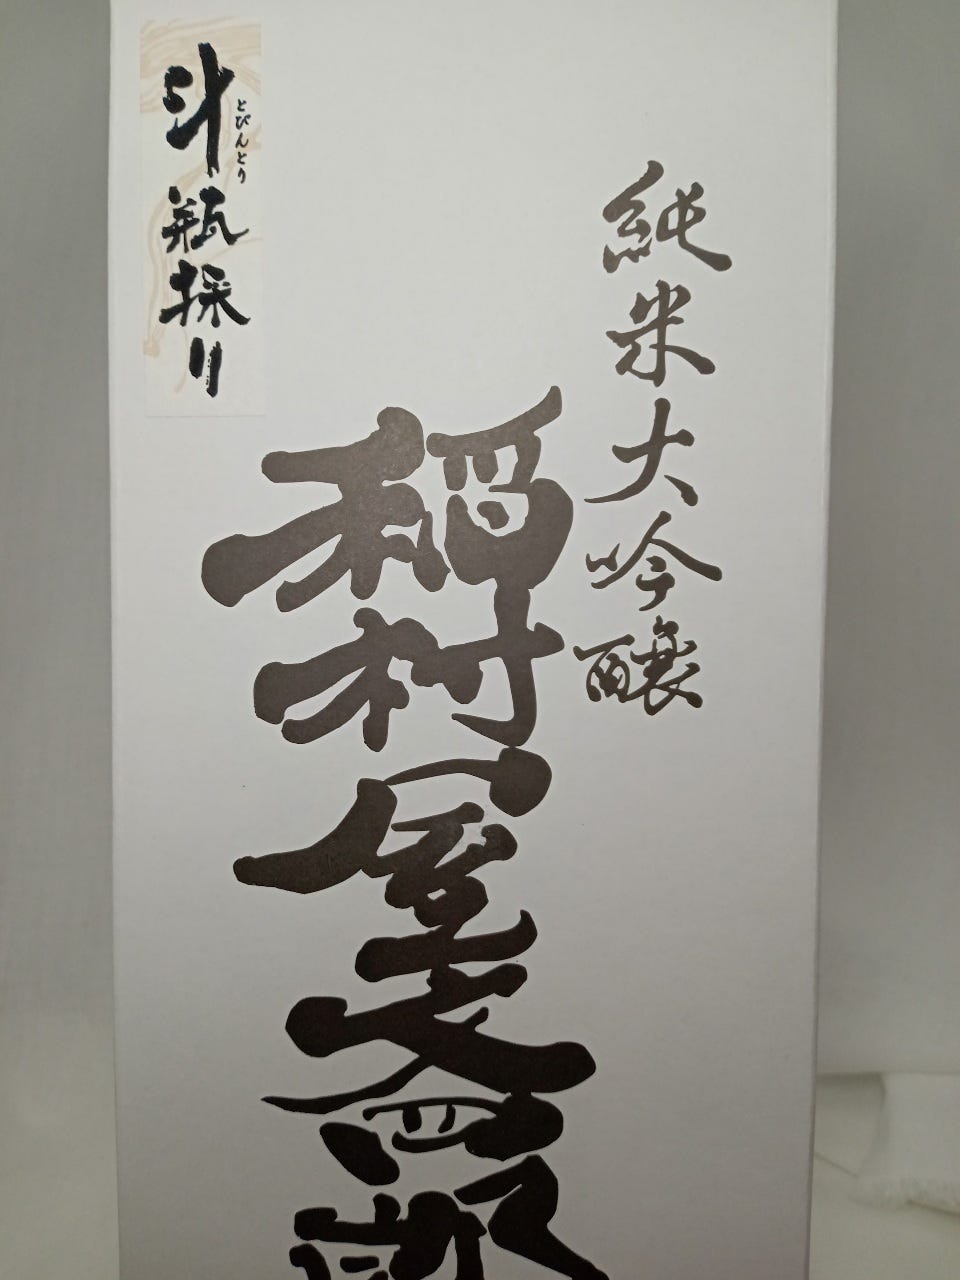 純米大吟醸
稲村屋文四郎
斗瓶採り
とびんとり